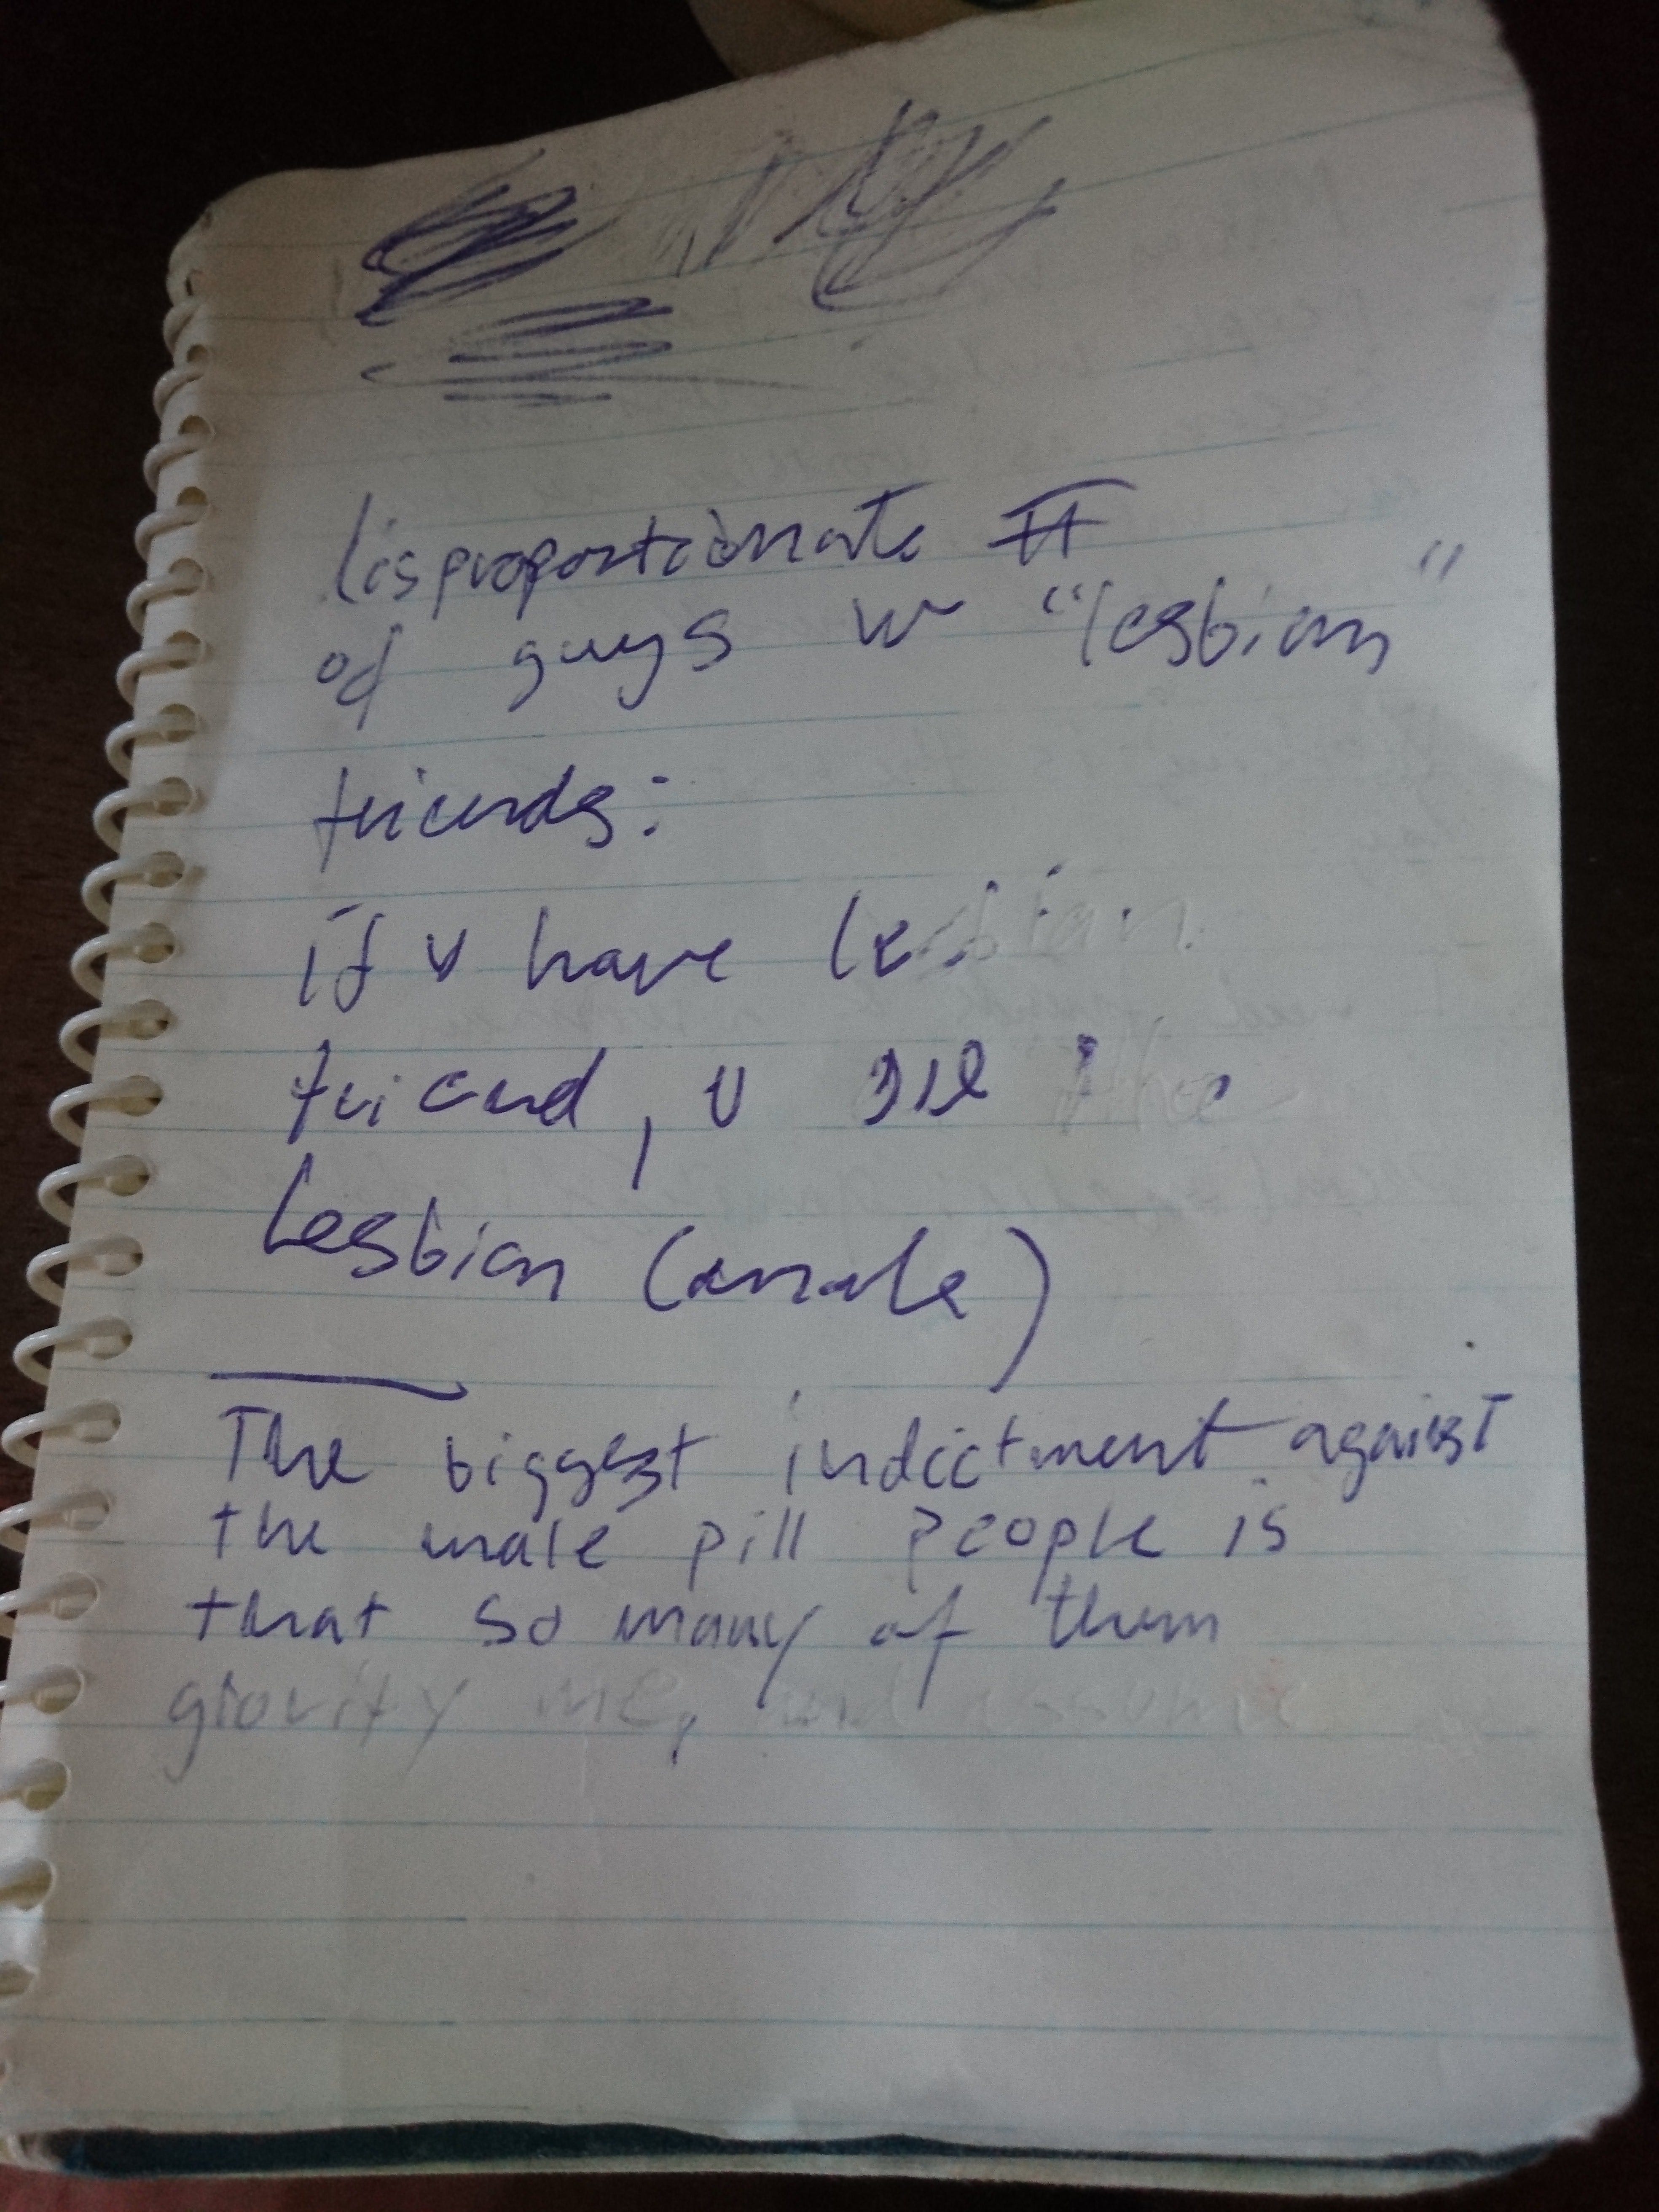 disproportionate #
of guys w "lesbian"
friends:
if u have lesbian
friend, u are the
lesbian (male)
The biggest indictment against
the male pill people is
that so many of them
me, and